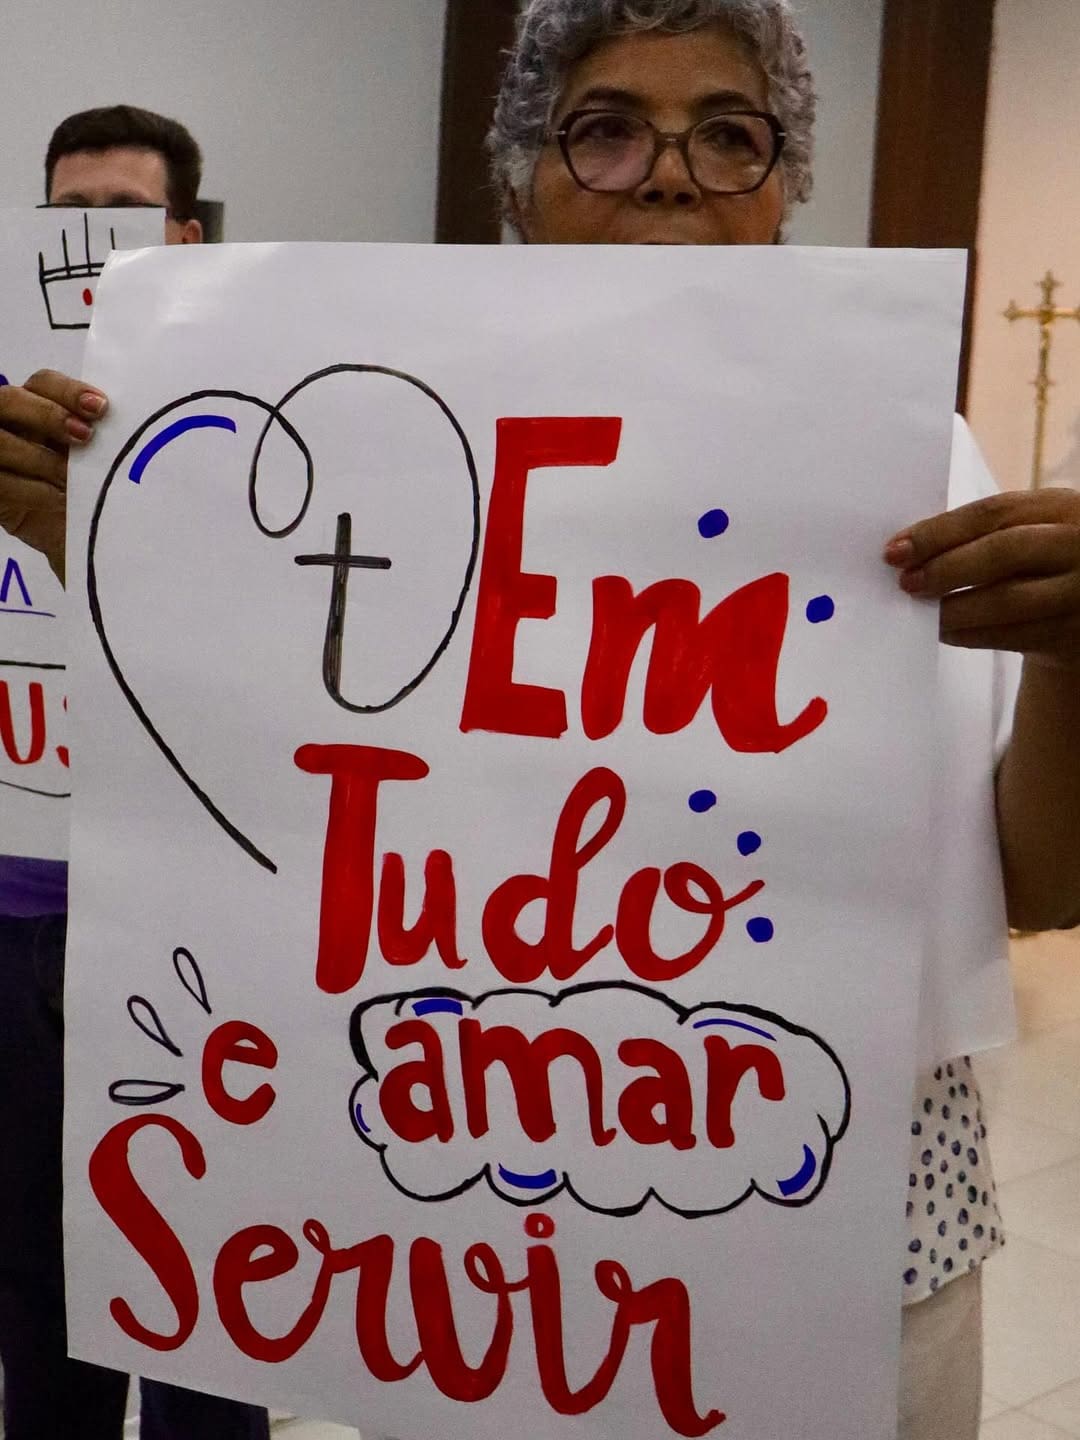 Em
Tudo
e amar
Servir